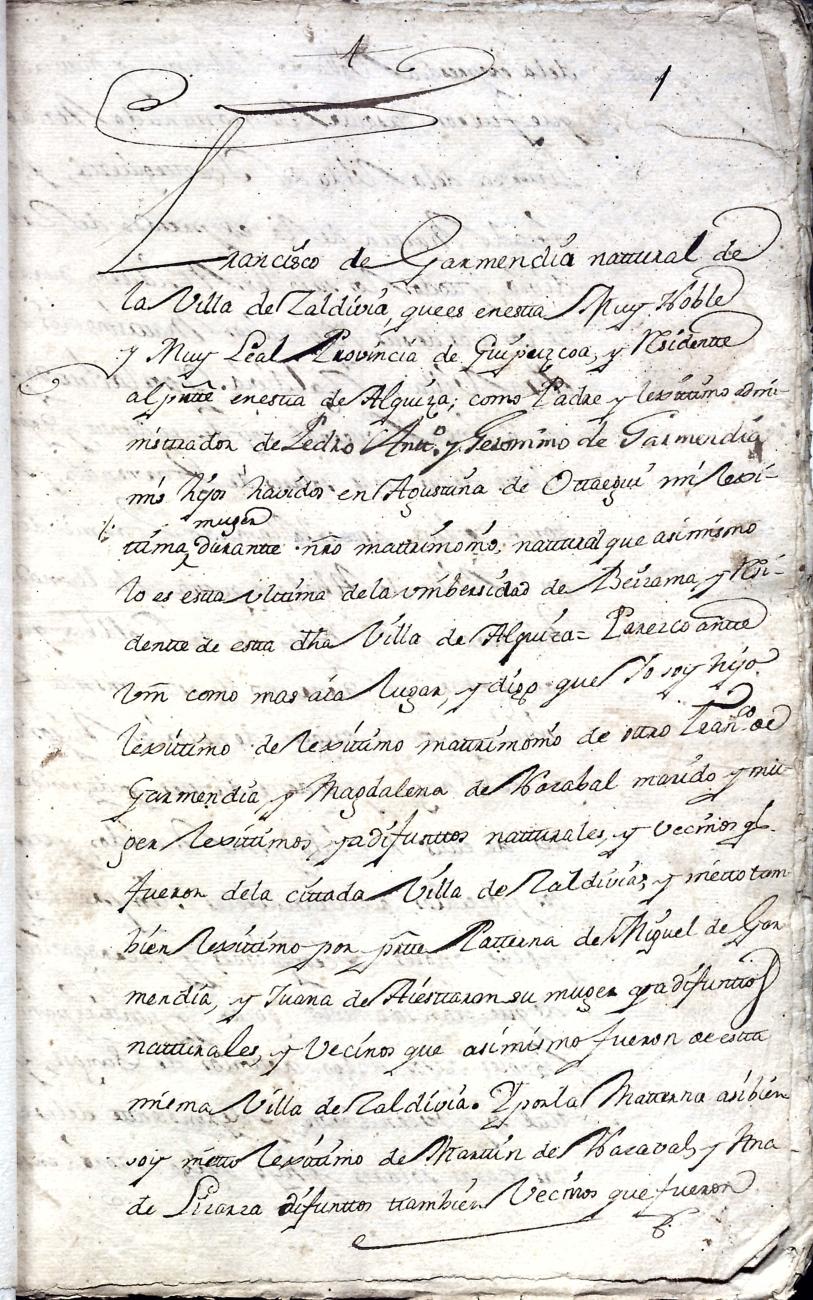 1
Francisco de Garmendia nattural de
la Villa de Zaldivia, que es en esta Muy Noble
y Muy Leal Provincia de Guipuzcoa, y Residente
al pntte en esta de Alquiza; como Padre y lexittimo admi-
nistrador de Pedro Antto. y Geronimo de Garmendia
mis hijos havidos en Agustina de Ottaegui mi Lexi-
muger
ttima durantte nro mattrimonio, natural que asimismo
lo es esta ulttima de la universidad de Beizama, y Resi-
dentte de esta dha Villa de Alquiza = Parezco antte
Vm como mas aia lugar, y digo que Yo soy hijo
lexittimo de lexittimo mattrimonio de ottro Franco. de
Garmendia, y Magdalena de Narabal marido y mu-
ger lexittimos, ya difunttos natturales, y vecinos q.
fueron de la cittada Villa de Zaldivia; y nietto tam
bien lexittimo por partte Patterna de Miguel de Gar
mendia, y Juana de Aiesttaran su muger ya difunttos
natturales, y Vecinos que asimismo fueron de esta
misma Villa de Zaldivia. Y por la Matterna asi bien
soy nietto lexittimo de Marttin de Naraval, y Ana
de Lizarza difunttos ttambien Vecinos que fueron